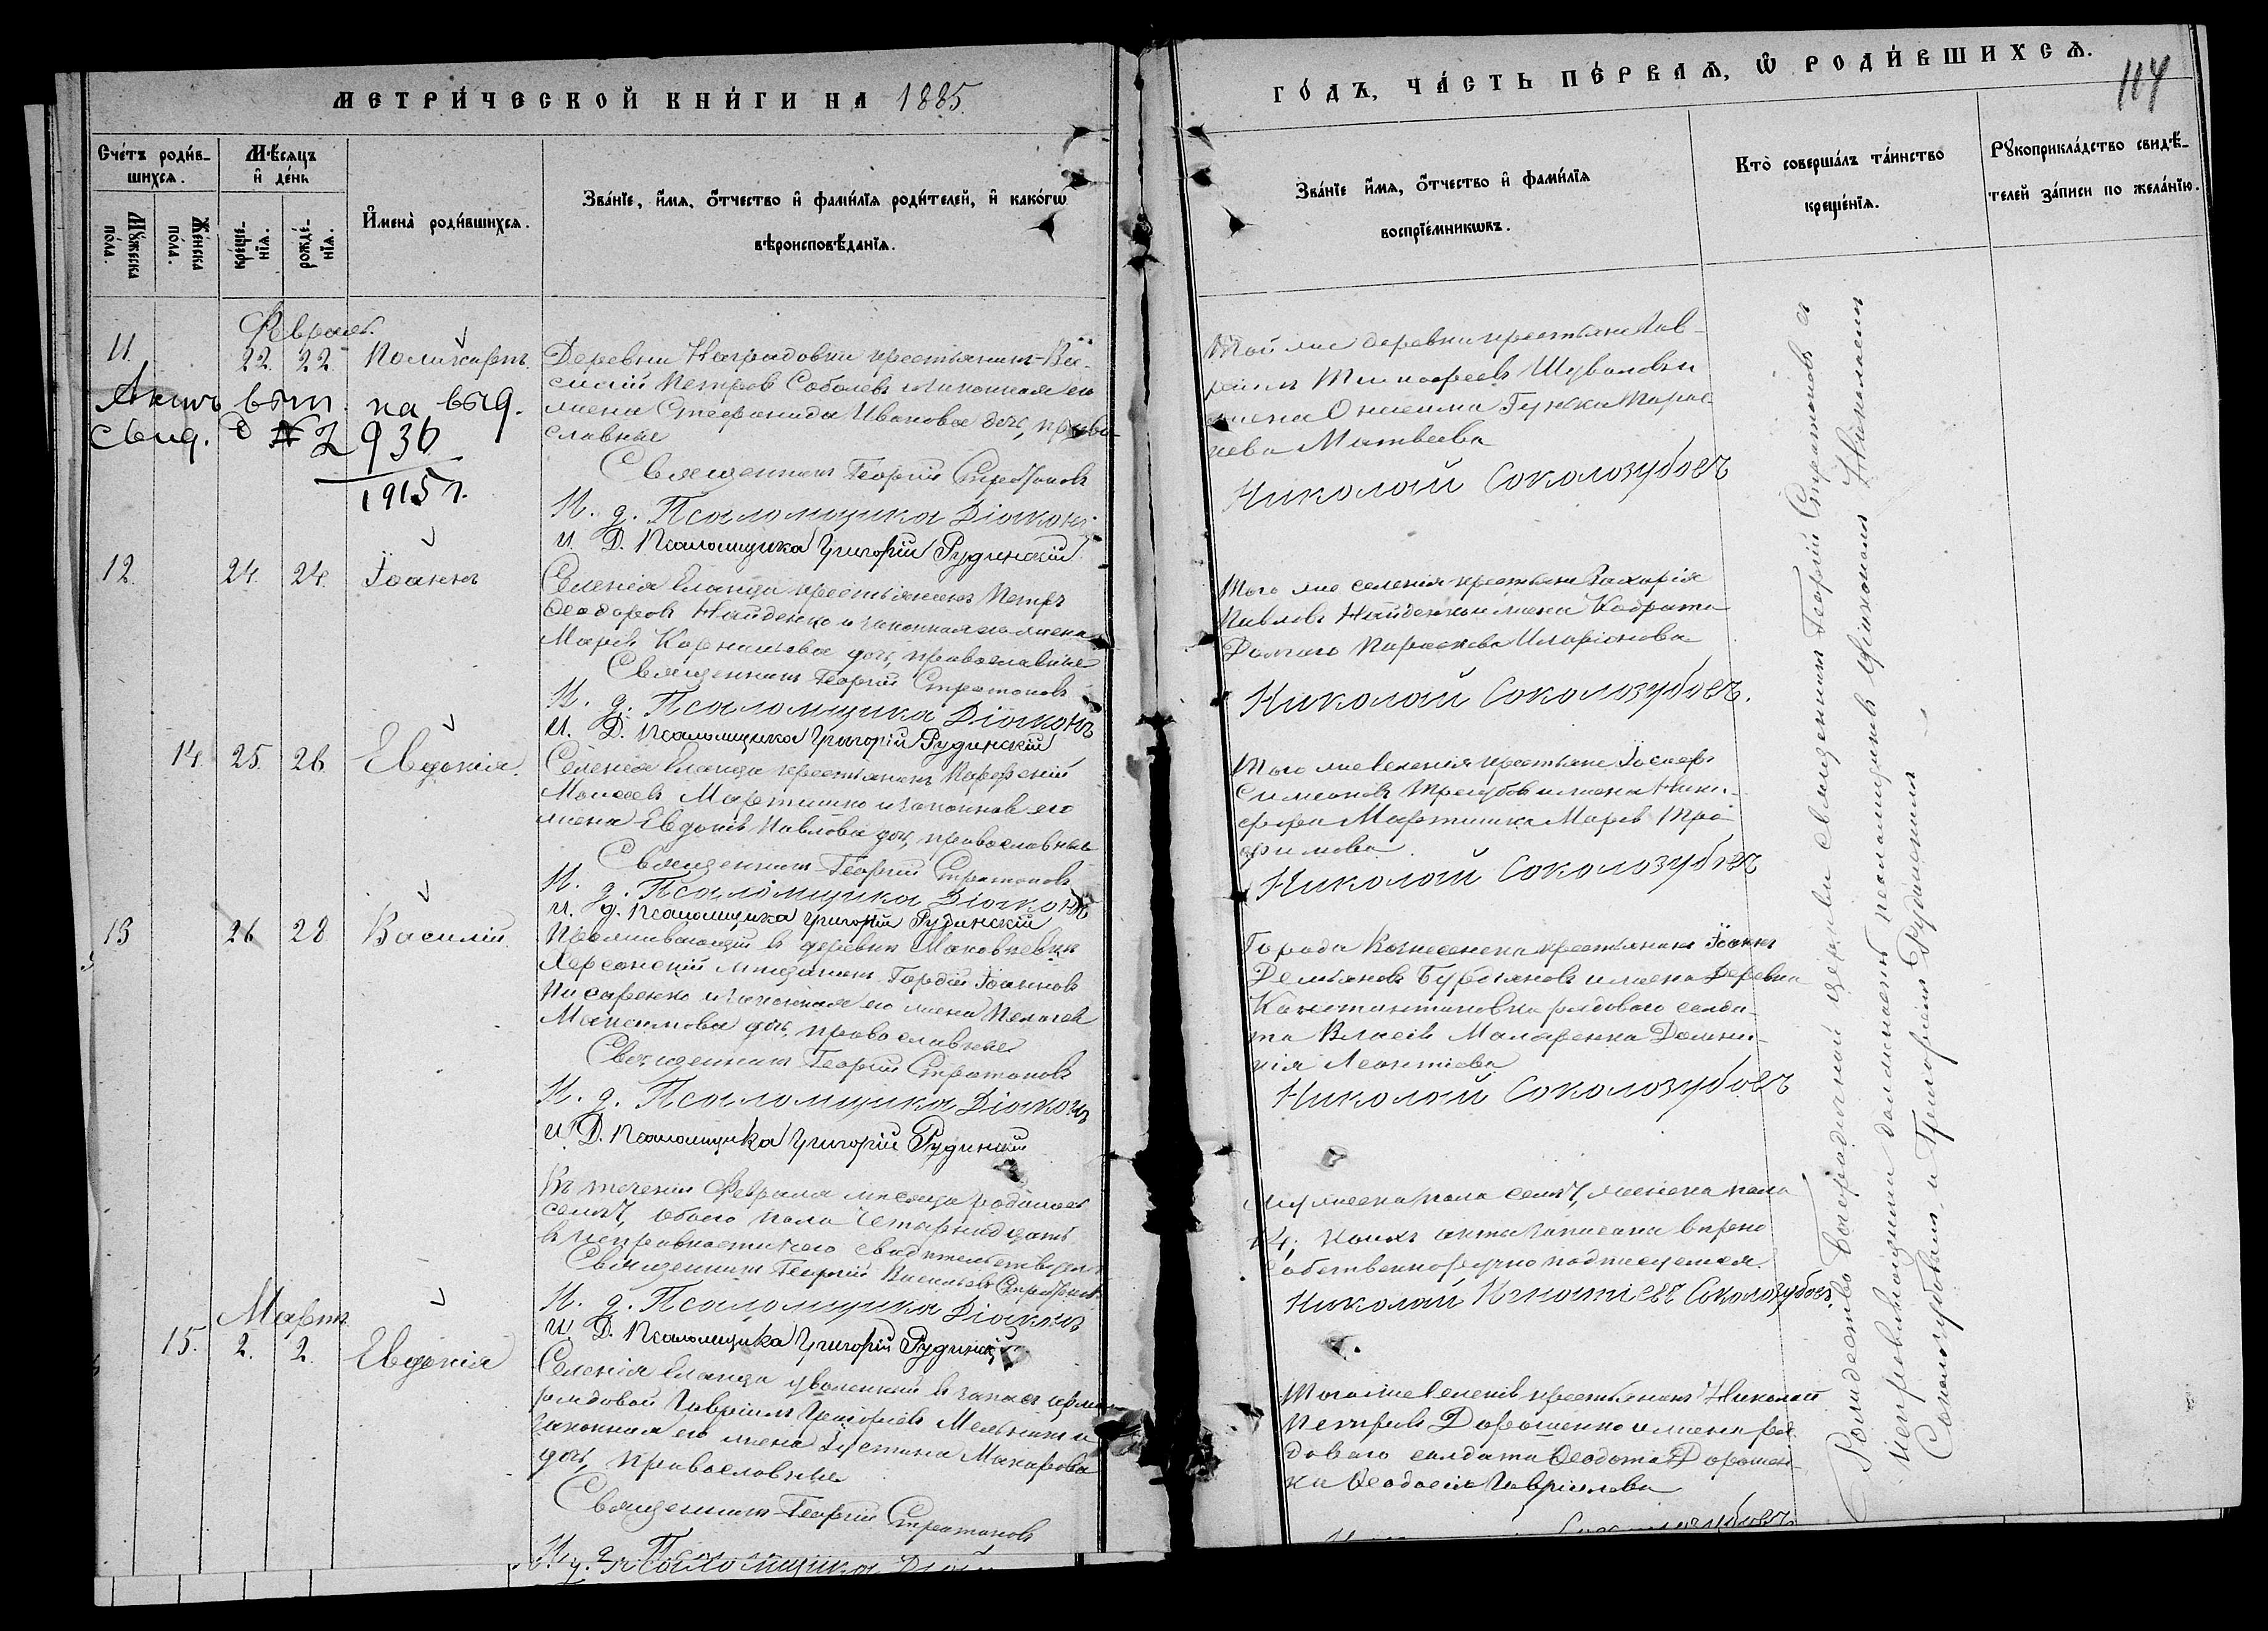 МЕТРИ́ЧЕСКОЙ КНИ́ГИ НА 1885
ГО́ДЪ, ЧА́СТЬ ПЕ́РВАѦ, Ѡ҆ РОДИ́ВШИХСѦ.
114
Сче́тъ роди́в-
шихсѧ.
Мꙋ́жеска
по́ла.
Же́нска
по́ла.
Мѣ́сѧцъ
и҆ де́нь
креще́-
нїѧ.
рожде́-
нїѧ.
И҆мена̀ роди́вшихсѧ.
Зва́нїе, и҆́мѧ, ѻ҆́тчество и҆ фами́лїѧ роди́телей, и҆ како́гѡ
вѣроисповѣ́данїѧ.
Зва́нїе и҆́мѧ, ѻ҆́тчество и҆ фами́лїѧ
воспрїе́мникѡвъ.
Кто̀ соверша́лъ та́инство
креще́нїѧ.
Рꙋкоприкла́дство свидѣ́-
телей за́писи по жела́нїю.
Февраль.
11. 22. 22. Поликарпъ.
Деревни Наградовки крестьянинъ Ва-
силій Петровъ Соболевъ и законная его
жена Стефанида Иванова дочь, право-
славные
Священникъ Георгій Стратоновъ
И. д. Псаломщика Діаконъ
И. Д. Псаломщика Григорій Рудинскій
Той же деревни крестьяне Гав-
ріилъ Тимофеевъ Шуваловъ и
жена
Матвеева
Николай Соколозубовъ
Актъ вып. на выд.
свид. № 2936
1915 г.
12. 24. 24. Іоаннъ
Селенія Еланца крестьянинъ Петръ
Ѳеодоровъ Найденко и законная его жена
Марія Корнильева дочь, православные
Священникъ Георгій Стратоновъ
И. д. Псаломщика Діаконъ
И. Д. Псаломщика Григорій Рудинскій
Того же селенія крестьяне Захарія
Павловъ Найденко и жена Кодрата
Параскева Иларіонова
Николай Соколозубовъ.
14. 25. 26. Евдокія.
Селенія Еланца крестьянинъ Парфеній
Моисеевъ Мартишко и законная его
жена Евдокія Павлова дочь, православные
Священникъ Георгій Стратоновъ
И. д. Псаломщика Діаконъ
И. д. Псаломщика Григорій Рудинскій
Того же селенія крестьяне Іосифъ
Симеоновъ Трегубовъ и жена Ники-
фора Мартишка Марія Тро-
фимова
Николай Соколозубовъ
13 26 28 Василій.
Проживающій въ деревни Маковеевки
Херсонскій мещанинъ Гордій Іоанновъ
Писаренко и законная его жена Пелагея
Максимова дочь, православные
Священникъ Георгій Стратоновъ
И. д. Псаломщика Діаконъ
И. Д. Псаломщика Григорій Рудинскій
Города Вознесенска крестьянинъ Іоаннъ
Демьяновъ и жена деревни
Константиновки рядового солда-
та Власія Маларенка Домни-
кія Леонтіева
Николай Соколозубовъ
Въ теченіи Февраля месяца родилось
семь, обоего пола четырнадцать
въ исправности чего свидетельствуемъ
Священникъ Георгій Васильевъ Стратоновъ
И. д. Псаломщика Діаконъ
И. Д. Псаломщика Григорій Рудинскій
мужеска пола семь, женска пола
14; коихъ акты записаны верно
собственноручно подписуемся.
Николай Игнатіевъ Соколозубовъ.
Мартъ
15. 2. 2. Евдокія
Селенія Еланца уволенный въ запасъ арміи
рядовой Гавріилъ Григорьевъ Мельникъ и
законная его жена Іустина Макарова
дочь, православные
Священникъ Георгій Стратоновъ
И. д. Псаломщика
Того же селенія крестьянинъ Николай
Петровъ Дорошенко и жена ря-
дового солдата Ѳеодота Дорошен-
ка Ѳеодосія Гавріилова
Рождество Богородичной церкви Священникъ Георгій Стратоновъ съ
исправляющими должность псаломщиковъ Діакономъ Николаемъ
Соколозубовымъ и Григоріемъ Рудинскимъ